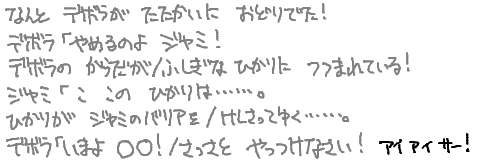 なんと デボラが たたかいに おどりでた!
デボラ「やめるのよ ジャミ!
デボラの からだが/ふしぎな ひかりに つつまれている!
ジャミ「こ この ひかりは……。
ひかりが ジャミのバリアを/けしさってゆく……。
デボラ「いまよ ○○!/さっさと やっつけなさい! アイアイサー!